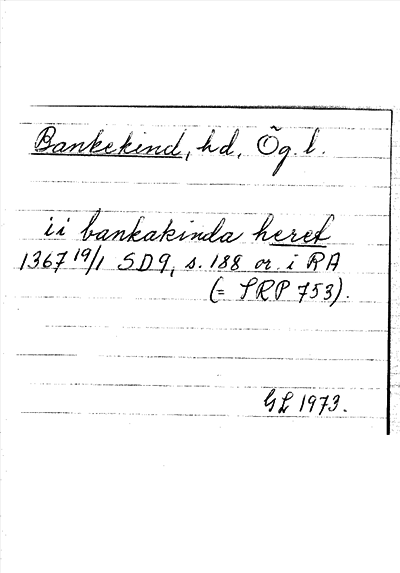 Bankekind, hd, Ög. l.
i i bankakinda heret
1367 19/1 SD 9, s. 188 or. i RA
(= SRP 753).
GL 1973.